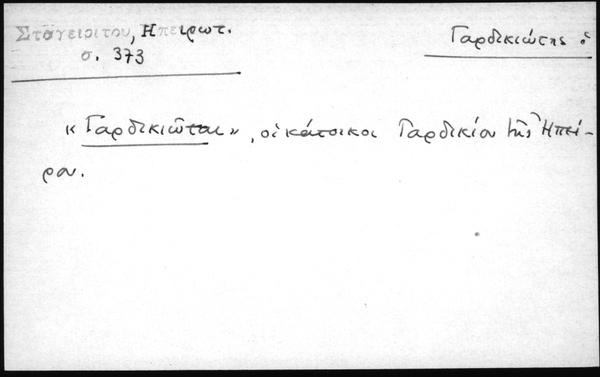 Σταγειρίτου, Ηπειρωτ.
σ. 373
Γαρδικιώτης ὁ
«Γαρδικιῶται», οἱ κάτοικοι Γαρδικίου τῆς Ἠπεί-
ρου.